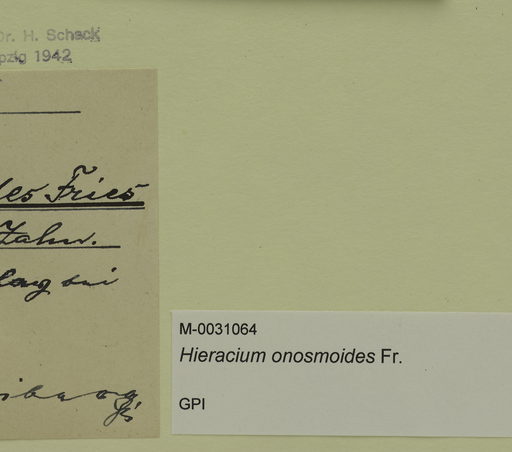 Dr. H. Schack
pzig 1942
des Fries
Zahn.
bei
M-0031064
Hieracium onosmoides Fr.
GPI